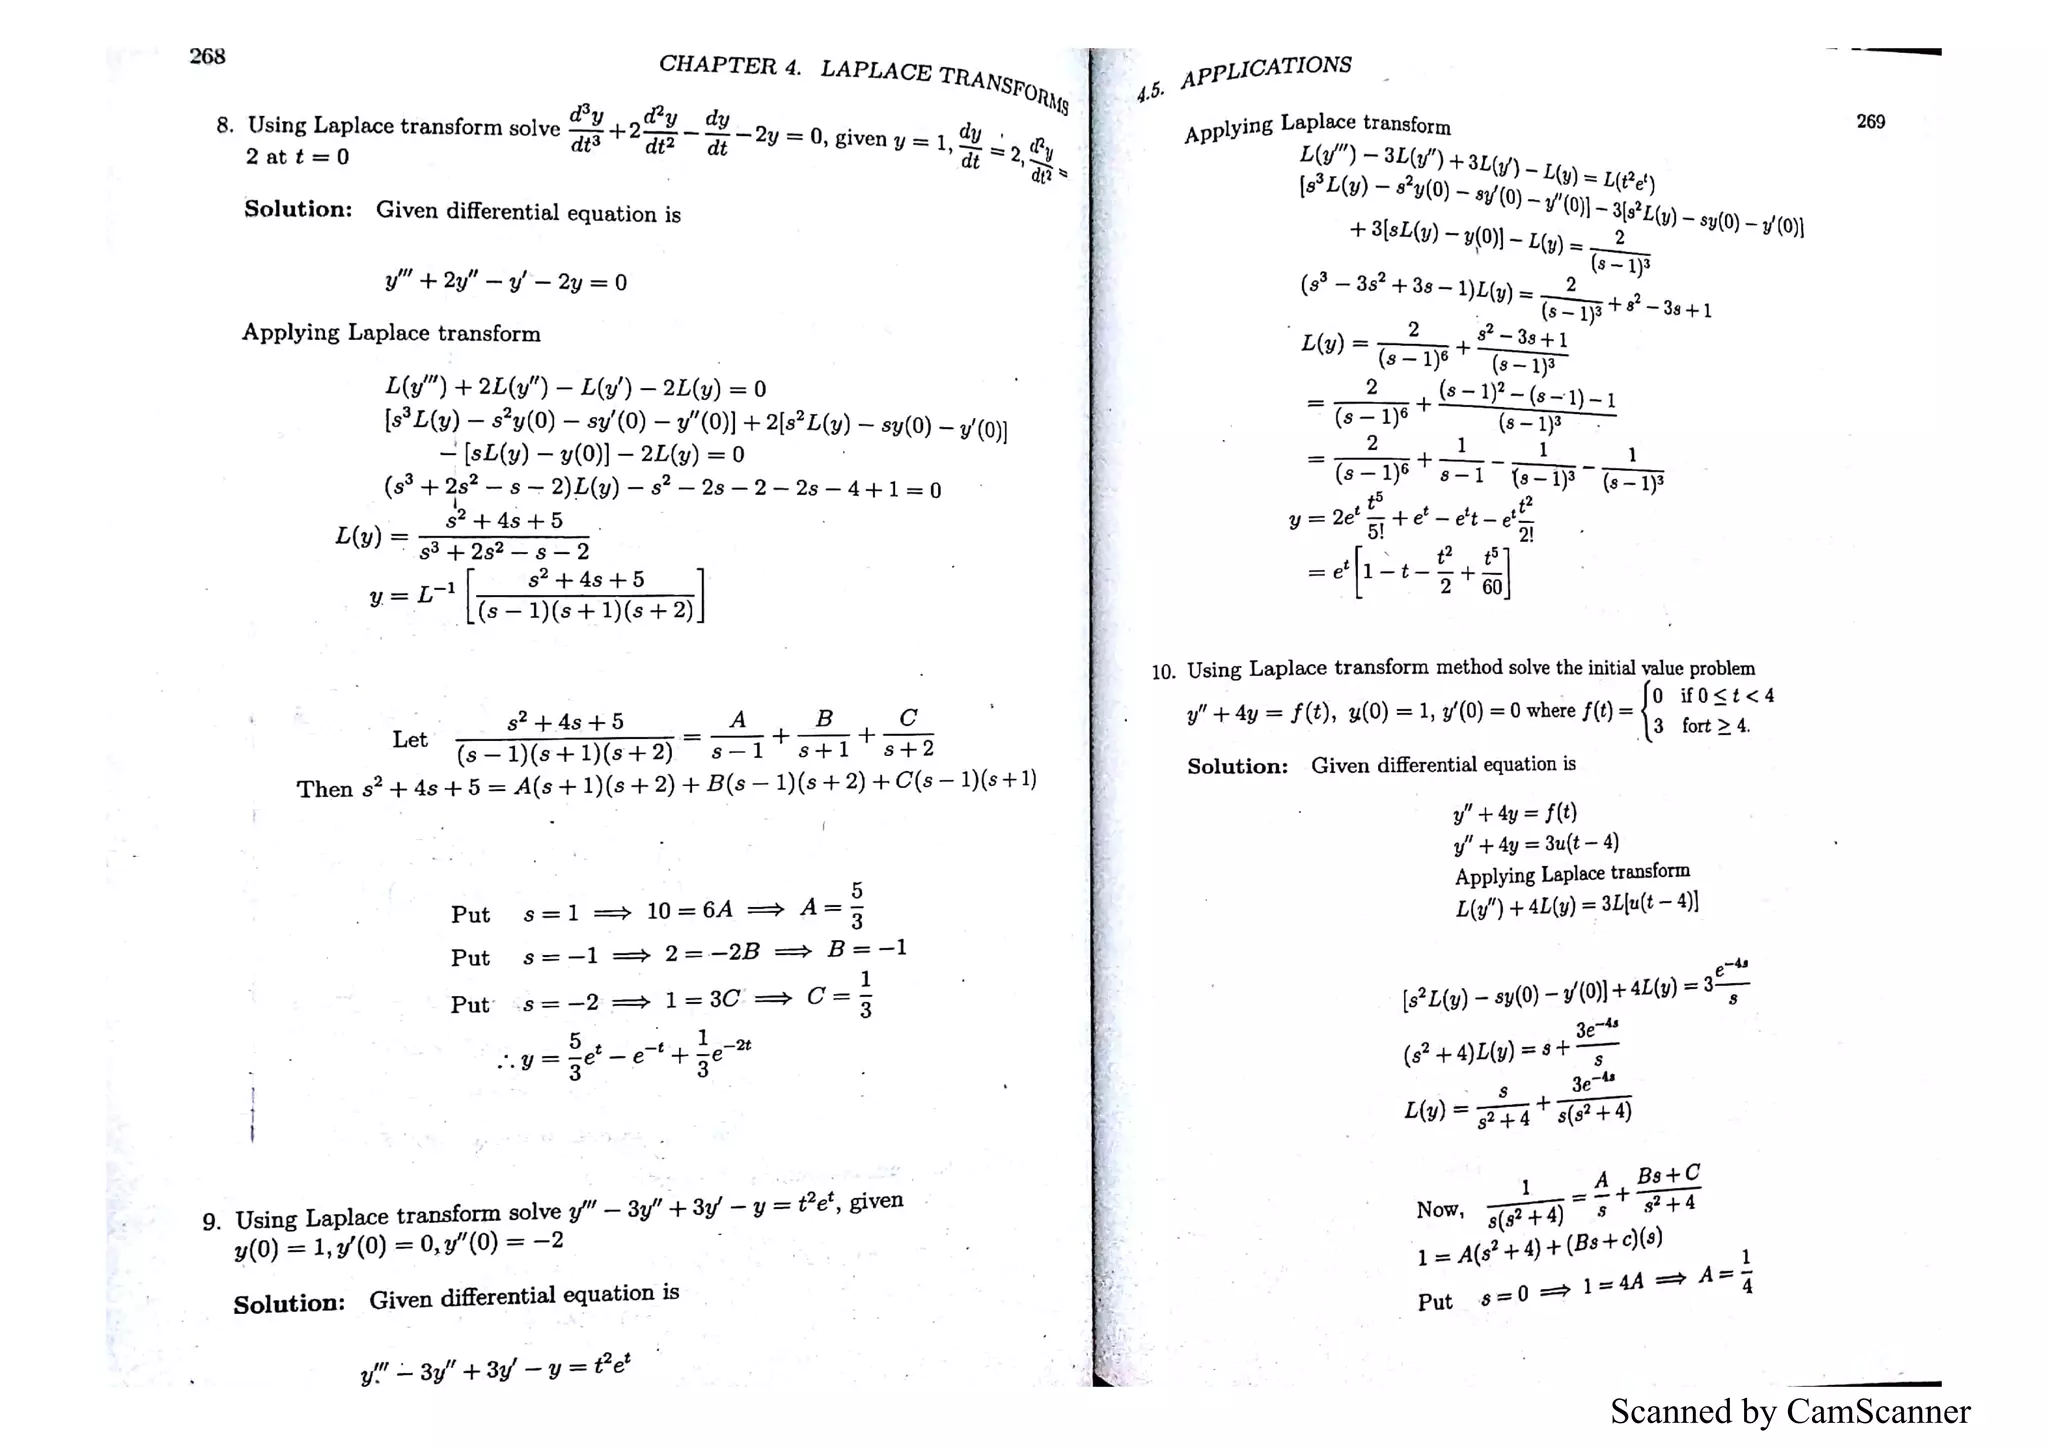 268
CHAPTER 4. LAPLACE TRANSFORMS
8. Using Laplace transform solve d³y/dt³ + 2 d²y/dt² − dy/dt − 2y = 0, given y = 1, dy/dt = 2, d²y/dt² =
2 at t = 0
Solution: Given differential equation is
y''' + 2y'' − y' − 2y = 0
Applying Laplace transform
L(y''') + 2L(y'') − L(y') − 2L(y) = 0
[s³L(y) − s²y(0) − sy'(0) − y''(0)] + 2[s²L(y) − sy(0) − y'(0)]
− [sL(y) − y(0)] − 2L(y) = 0
(s³ + 2s² − s − 2)L(y) − s² − 2s − 2 − 2s − 4 + 1 = 0
L(y) = (s² + 4s + 5)/(s³ + 2s² − s − 2)
y = L⁻¹ [(s² + 4s + 5)/((s − 1)(s + 1)(s + 2))]
Let (s² + 4s + 5)/((s − 1)(s + 1)(s + 2)) = A/(s − 1) + B/(s + 1) + C/(s + 2)
Then s² + 4s + 5 = A(s + 1)(s + 2) + B(s − 1)(s + 2) + C(s − 1)(s + 1)
Put s = 1 ⟹ 10 = 6A ⟹ A = 5/3
Put s = −1 ⟹ 2 = −2B ⟹ B = −1
Put s = −2 ⟹ 1 = 3C ⟹ C = 1/3
∴ y = 5/3 eᵗ − e⁻ᵗ + 1/3 e⁻²ᵗ
9. Using Laplace transform solve y''' − 3y'' + 3y' − y = t²eᵗ, given
y(0) = 1, y'(0) = 0, y''(0) = −2
Solution: Given differential equation is
y''' − 3y'' + 3y' − y = t²eᵗ
4.5. APPLICATIONS
269
Applying Laplace transform
L(y''') − 3L(y'') + 3L(y') − L(y) = L(t²eᵗ)
[s³L(y) − s²y(0) − sy'(0) − y''(0)] − 3[s²L(y) − sy(0) − y'(0)]
+ 3[sL(y) − y(0)] − L(y) = 2/(s − 1)³
(s³ − 3s² + 3s − 1)L(y) = 2/(s − 1)³ + s² − 3s + 1
L(y) = 2/(s − 1)⁶ + (s² − 3s + 1)/(s − 1)³
= 2/(s − 1)⁶ + ((s − 1)² − (s − 1) − 1)/(s − 1)³
= 2/(s − 1)⁶ + 1/(s − 1) − 1/(s − 1)³ − 1/(s − 1)³
y = 2eᵗ t⁵/5! + eᵗ − eᵗt − eᵗ t²/2!
= eᵗ [1 − t − t²/2 + t⁵/60]
10. Using Laplace transform method solve the initial value problem
y'' + 4y = f(t), y(0) = 1, y'(0) = 0 where f(t) = {0 if 0 ≤ t < 4
3 fort ≥ 4.
Solution: Given differential equation is
y'' + 4y = f(t)
y'' + 4y = 3u(t − 4)
Applying Laplace transform
L(y'') + 4L(y) = 3L[u(t − 4)]
[s²L(y) − sy(0) − y'(0)] + 4L(y) = 3 e⁻⁴ˢ/s
(s² + 4)L(y) = s + 3e⁻⁴ˢ/s
L(y) = s/(s² + 4) + 3e⁻⁴ˢ/(s(s² + 4))
Now, 1/(s(s² + 4)) = A/s + (Bs + C)/(s² + 4)
1 = A(s² + 4) + (Bs + c)(s)
Put s = 0 ⟹ 1 = 4A ⟹ A = 1/4
Scanned by CamScanner